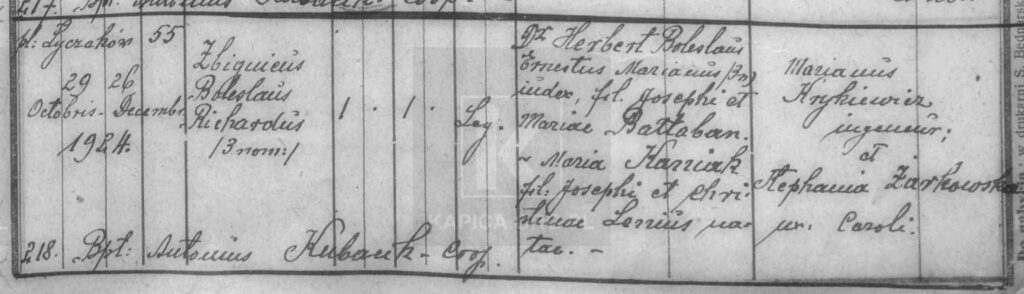 217. Bpt: Antonius Kubacek coop.
pl: Łyczaków 55
29 26
Octobris. Decembr.
1924.
Zbignieus
Boleslaus
Richardus
/3 nom:/
1. 1.
Leg.
Dr Herbert Boleslaus
Ernestus Marianus /3 n/
iudex, fil. Josephi et
Mariae Battaban.
~ Maria Kaniak
fil. Josephi et Chri-
stinae Lenius na-
tae. -
Marianus
Krykiewicz
ingeneur;
et
Stephania Żarkowska
ux. Caroli.
218. Bpt: Antonius Kubacek - coop.
KAPICA
w drukarni S. Bednarsk